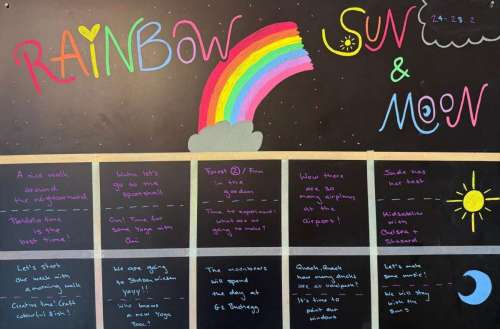 RAINBOW
SUN
&
MOON
24.-28.2
A nice walk
around
the neighbourhood
time is
the best time!
let's
go to the
Om! Time for
some Yoga with
Forest / Fun
in the
garden
Time to experiment:
what are we
going to make?
Wow there
are so
many airplanes
at the
airport!
her best
with
Chelsea +
Let's start
our week with
a morning walk
Creative time! Craft
colourful fish!
We are going
to
yayy!!
Who knows
a new Yoga
Pose?
The moonbears
will spend
the day at
Quack, Quack
how many ducks
are at
It's time to
paint our
windows
Let's make
some music!
We will stay
with the
Sun's